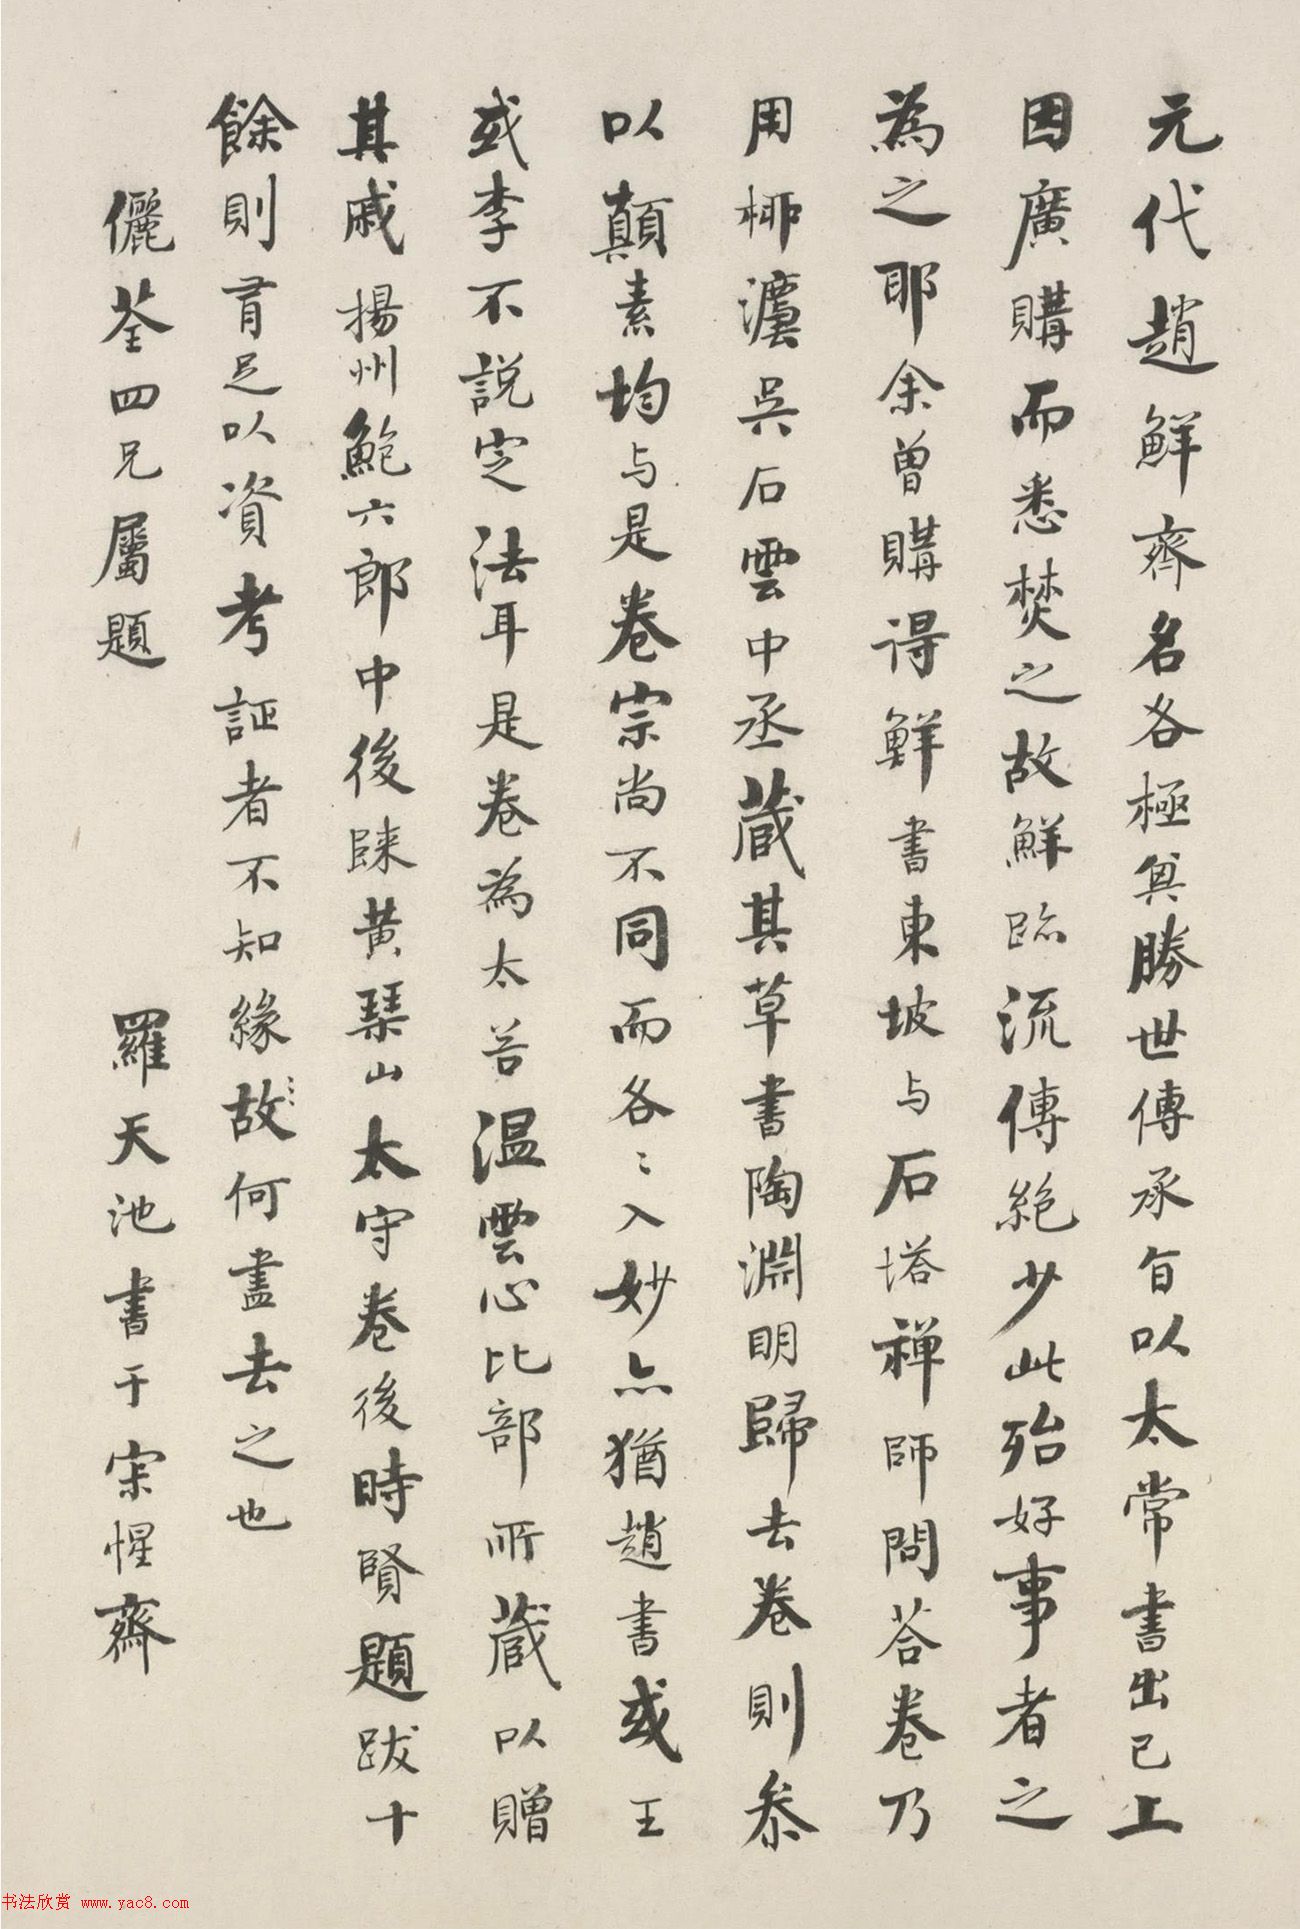 元代趙鮮齊名各極其勝世傳承旨以太常書出己上
因廣購而悉焚之故鮮跡流傳絕少此殆好事者之
為之耶余曾購得鮮書東坡与石塔禪師問荅卷乃
用柳灋吳石雲中丞蔵其草書陶淵明歸去卷則叅
以顛素均与是卷宗尚不同而各〻入妙亦猶趙書或王
或李不說定法耳是卷為太谷温雲心比部所蔵以贈
其戚揚州鮑六郎中後歸黃琴山太守卷後時賢題跋十
餘則胥足以資考証者不知緣故何盡去之也
儷荃四兄屬題　羅天池書于宲惺齋
书法欣赏 www.yac8.com